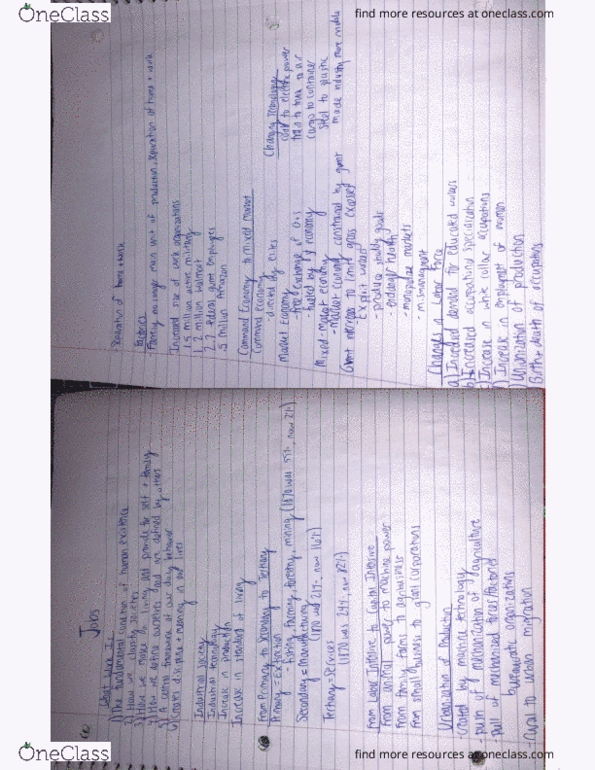 OneClass
find more resources at oneclass.com
Jobs
What Work Is
1) The fundamental condition of human existence
2) How we classify societies
3) How we make a living and provide for self + family
4) How we define ourselves and are defined by others
5) A central framework of our daily behavior
6) Creates discipline + meaning in our lives
Industrial Society
Industrial technology
Increase in production
Increase in standard of living
From Primary to Secondary to Tertiary
Primary = Extraction
- fishing, farming, forestry, mining (1870 was 55%, now 2%)
Secondary = Manufacturing
(1870 was 21%, now 16%)
Tertiary = Services
(1870 was 24%, now 82%)
From Labor Intensive to Capital Intensive
From animal power to machine power
From family farms to agribusiness
From small business to giant corporations
Urbanization of Production
- created by machine technology
- push of mechanization of agriculture
- Pull of mechanized factories
bureaucratic organizations
- rural to urban migration
Separation of home + work
Factories
Family no longer main unit of production, separation of home + work
Increased size of work organizations
1.5 million active military
1.2 million Walmart
2.7 federal gvmt employees
.5 million Amazon
Command Economy to mixed market
Command economy
- directed by elites
Market Economy
- free exchange of
- fueled by economy
Mixed-market economy
- Market economy constrained by gvmt
Gvmt increase to limit gross excesses
Exploit workers
- produce shoddy goods
- endanger health
- monopolize markets
- mismanagement
Changing Technology
coal to electric power
train to truck to air
cargo to container
steel to plastic
made industry more mobile
Changes in Labor Force
a) Increased demand for educated workers
b) Increased occupational specialization
c) Increase in white collar occupations
d) Increase in employment of women
Urbanization of production
Birth + death of occupations
OneClass
find more resources at oneclass.com